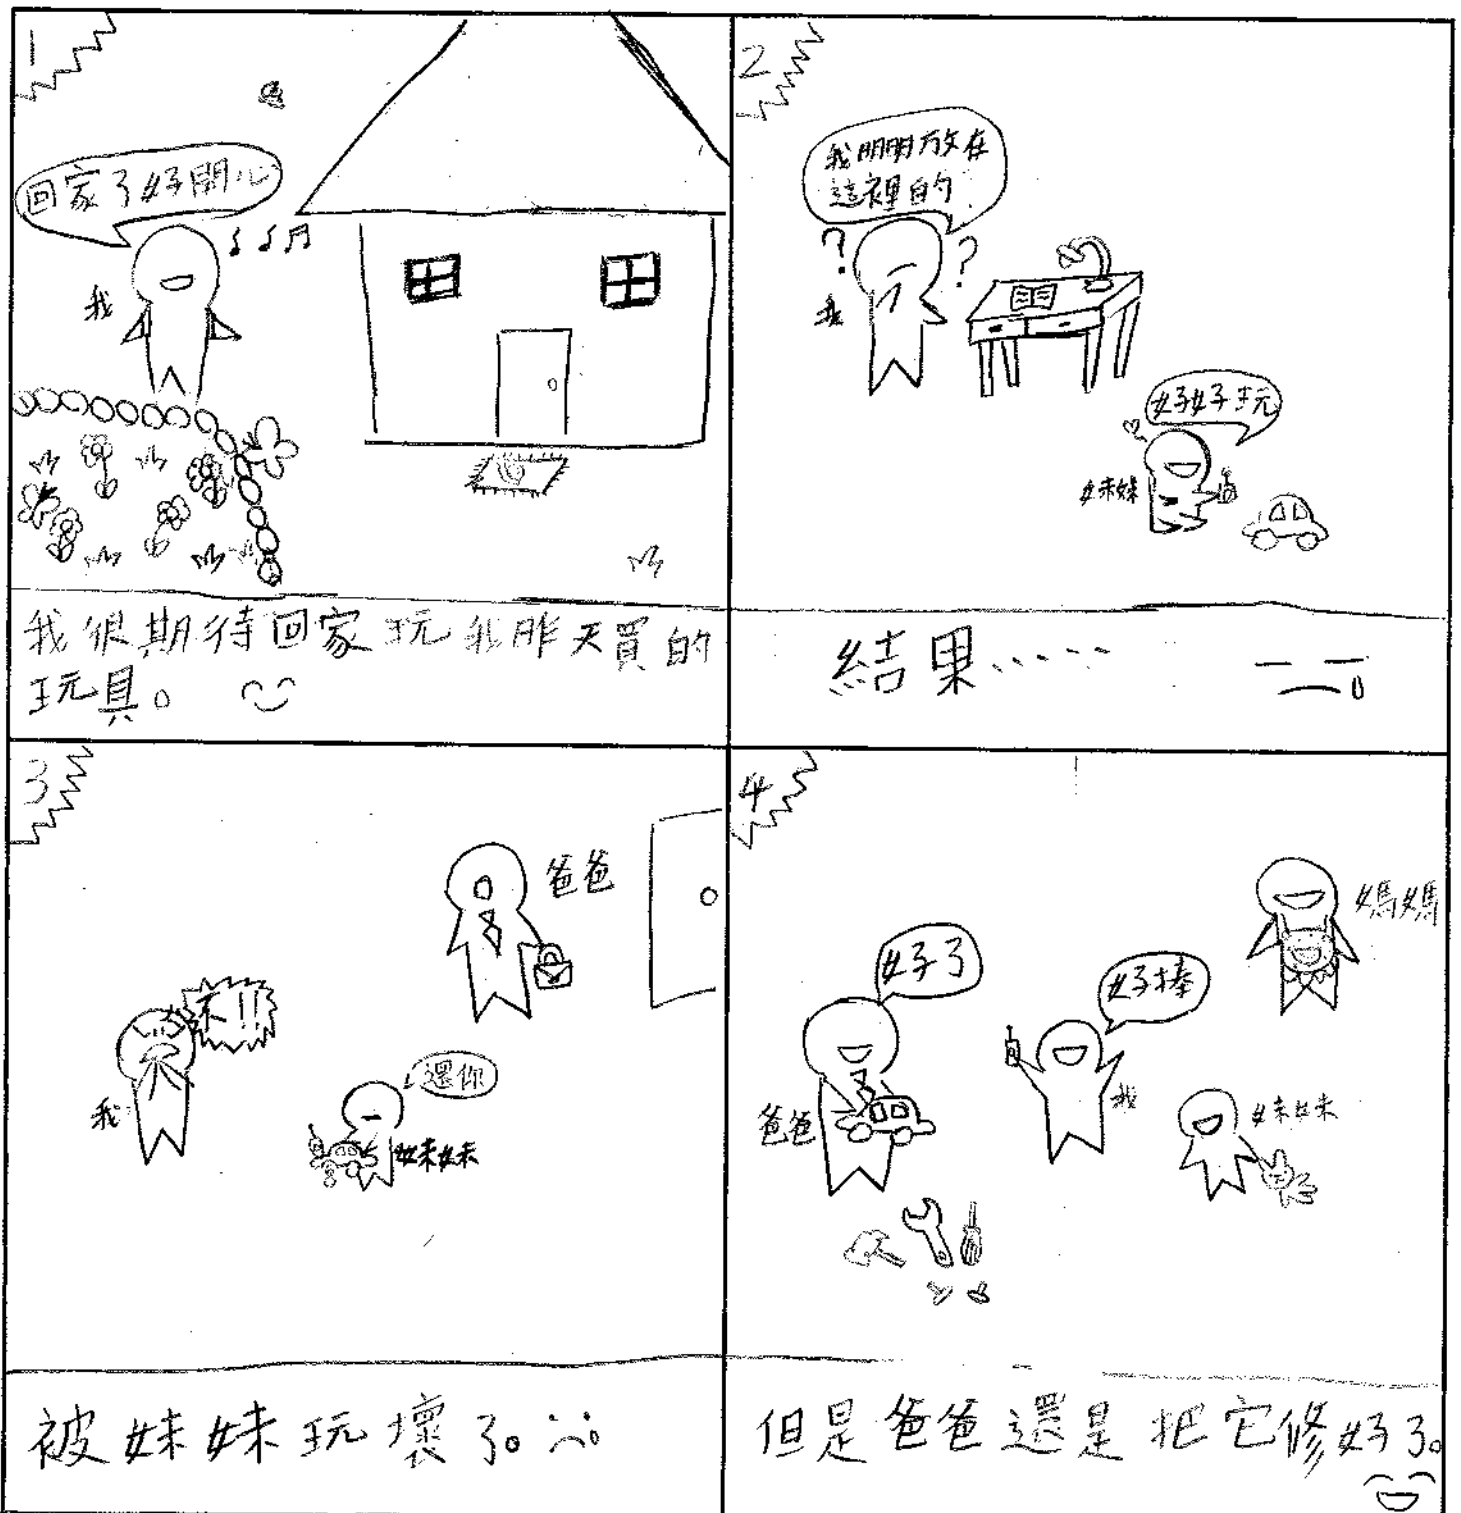 1
回家了好開心
我
我很期待回家玩我昨天買的
玩具。
2
我明明放在
這裡的
?
?
我
好好玩
妹妹
結果……
3
爸爸
不!!
我
還你
妹妹
被妹妹玩壞了。
4
媽媽
好了
好棒
爸爸
我
妹妹
但是爸爸還是把它修好了。